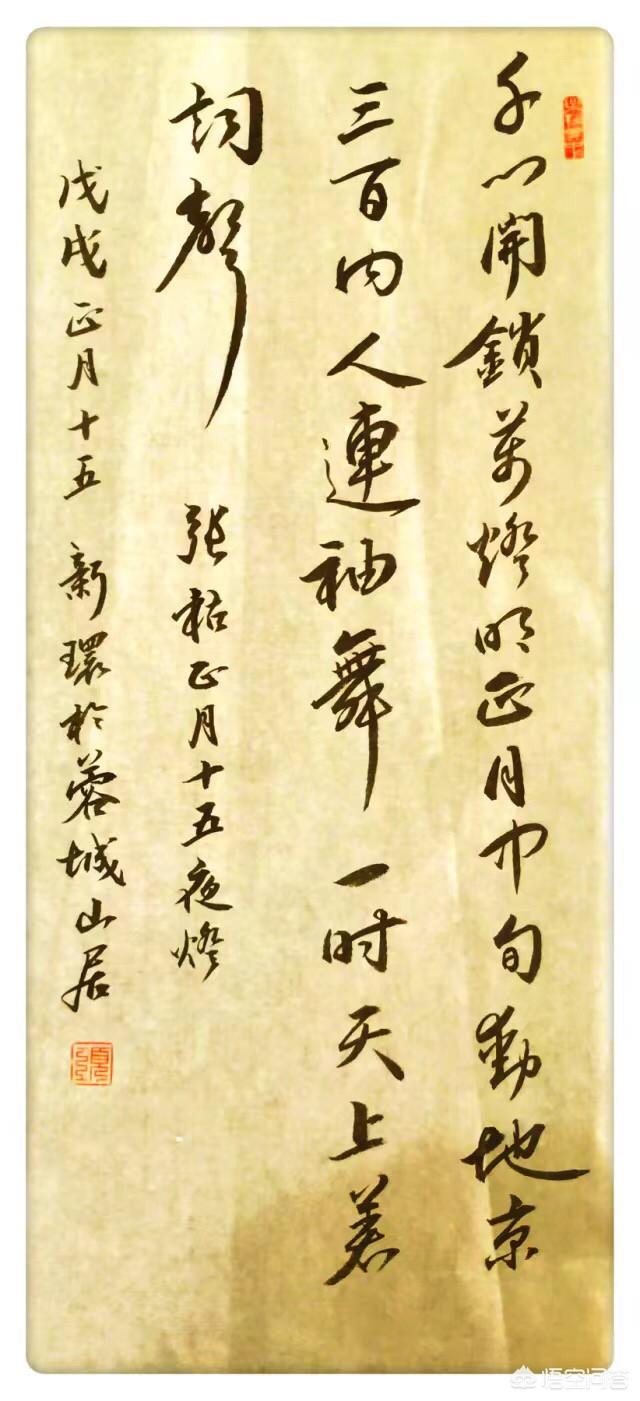 千门開鎖萬燈明正月中旬動地京
三百内人連袖舞一时天上著
詞聲
張祜正月十五夜燈
戊戌正月十五 新環於蓉城山居
悟空问答